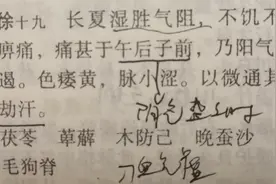 徐十九　长夏湿胜气阻，不饥不
痹痛，痛甚于午后子前，乃阳气
遏。色痿黄，脉小涩。以微通其
劫汗。
茯苓　萆薢　木防己　晚蚕沙
毛狗脊